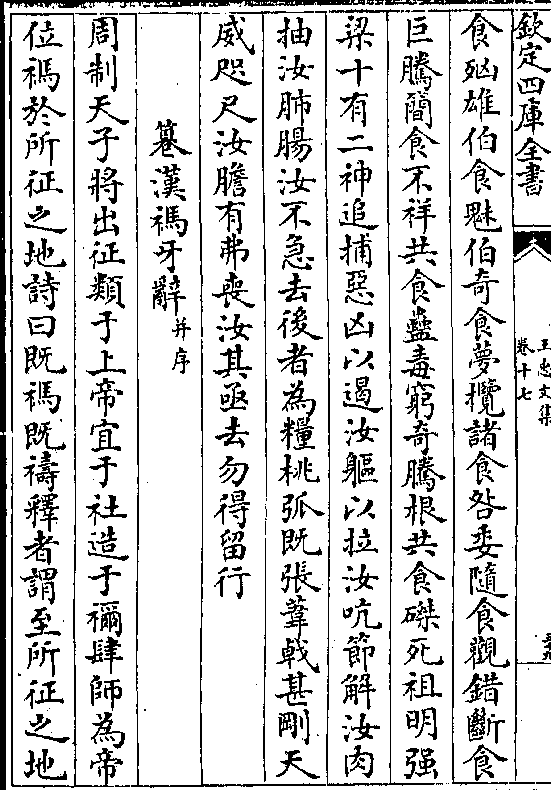 欽定四庫全書
王忠文集
卷十七
食㐫雄伯食魅伯奇食夢攬諸食咎委隨食觀錯斷食
巨騰簡食不祥共食蠱毒窮奇騰根共食磔死祖明强
梁十有二神追捕惡凶以遏汝軀以拉汝吭節解汝肉
抽汝肺腸汝不急去後者為糧桃弧既張葦㦸甚剛天
威咫尺汝膽有弗喪汝其亟去勿得留行
簒漢禡牙辭并序
周制天子將出征類于上帝宜于社造于禰肆師為帝
位禡於所征之地詩曰既禡既禱釋者謂至所征之地